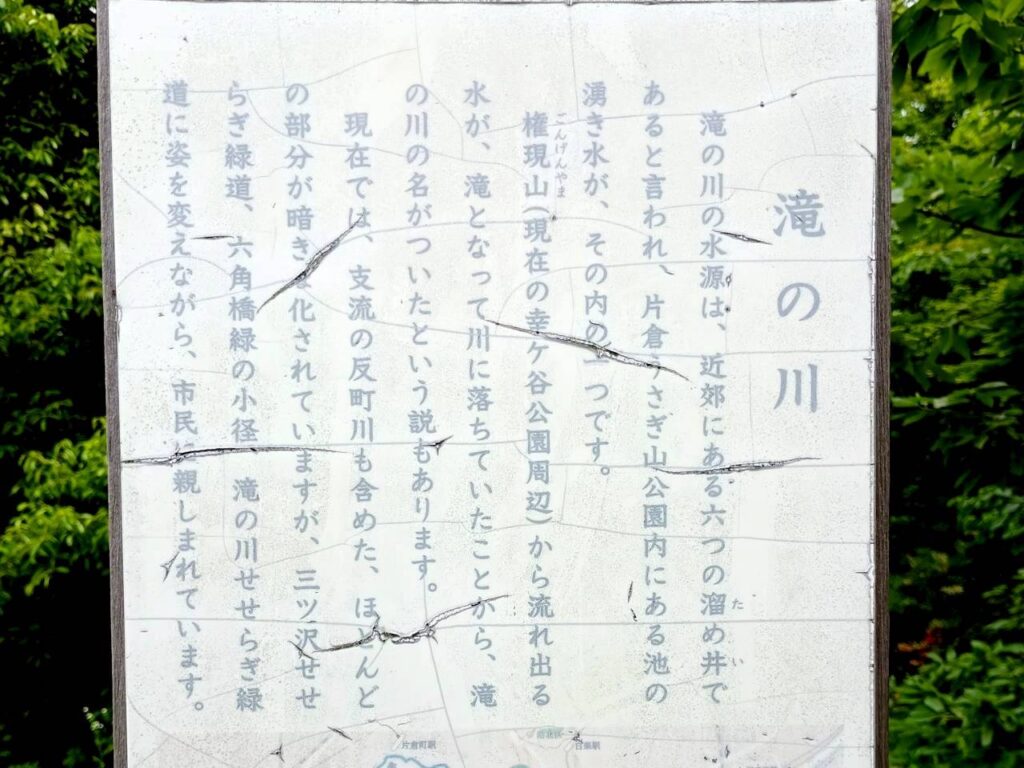 滝の川
滝の川の水源は、近郊にある六つの溜め井で
た い
あると言われ、片倉うさぎ山公園内にある池の
湧き水が、その内の一つです。
権現山(現在の幸ケ谷公園周辺)から流れ出る
ごんげんやま
水が、滝となって川に落ちていたことから、滝
の川の名がついたという説もあります。
現在では、支流の反町川も含めた、ほとんど
の部分が暗き 化されていますが、三ツ沢せせ
らぎ緑道、六角橋緑の小径、滝の川せせらぎ緑
道に姿を変えながら、市民に親しまれています。
片倉町駅